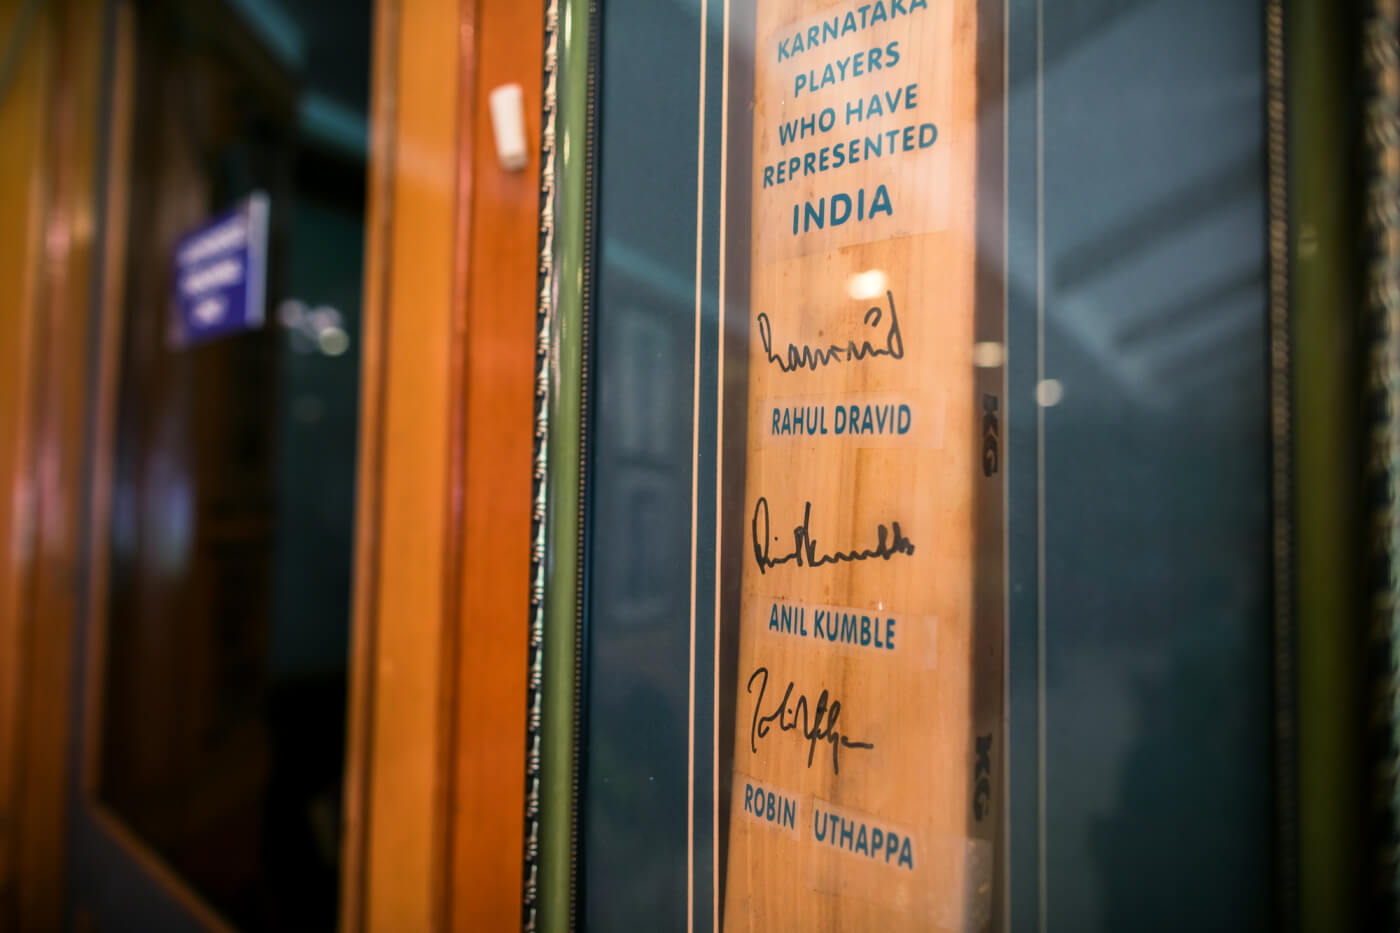 KARNATAKA
PLAYERS
WHO HAVE
REPRESENTED
INDIA
RAHUL DRAVID
KG
ANIL KUMBLE
KG
ROBIN UTHAPPA